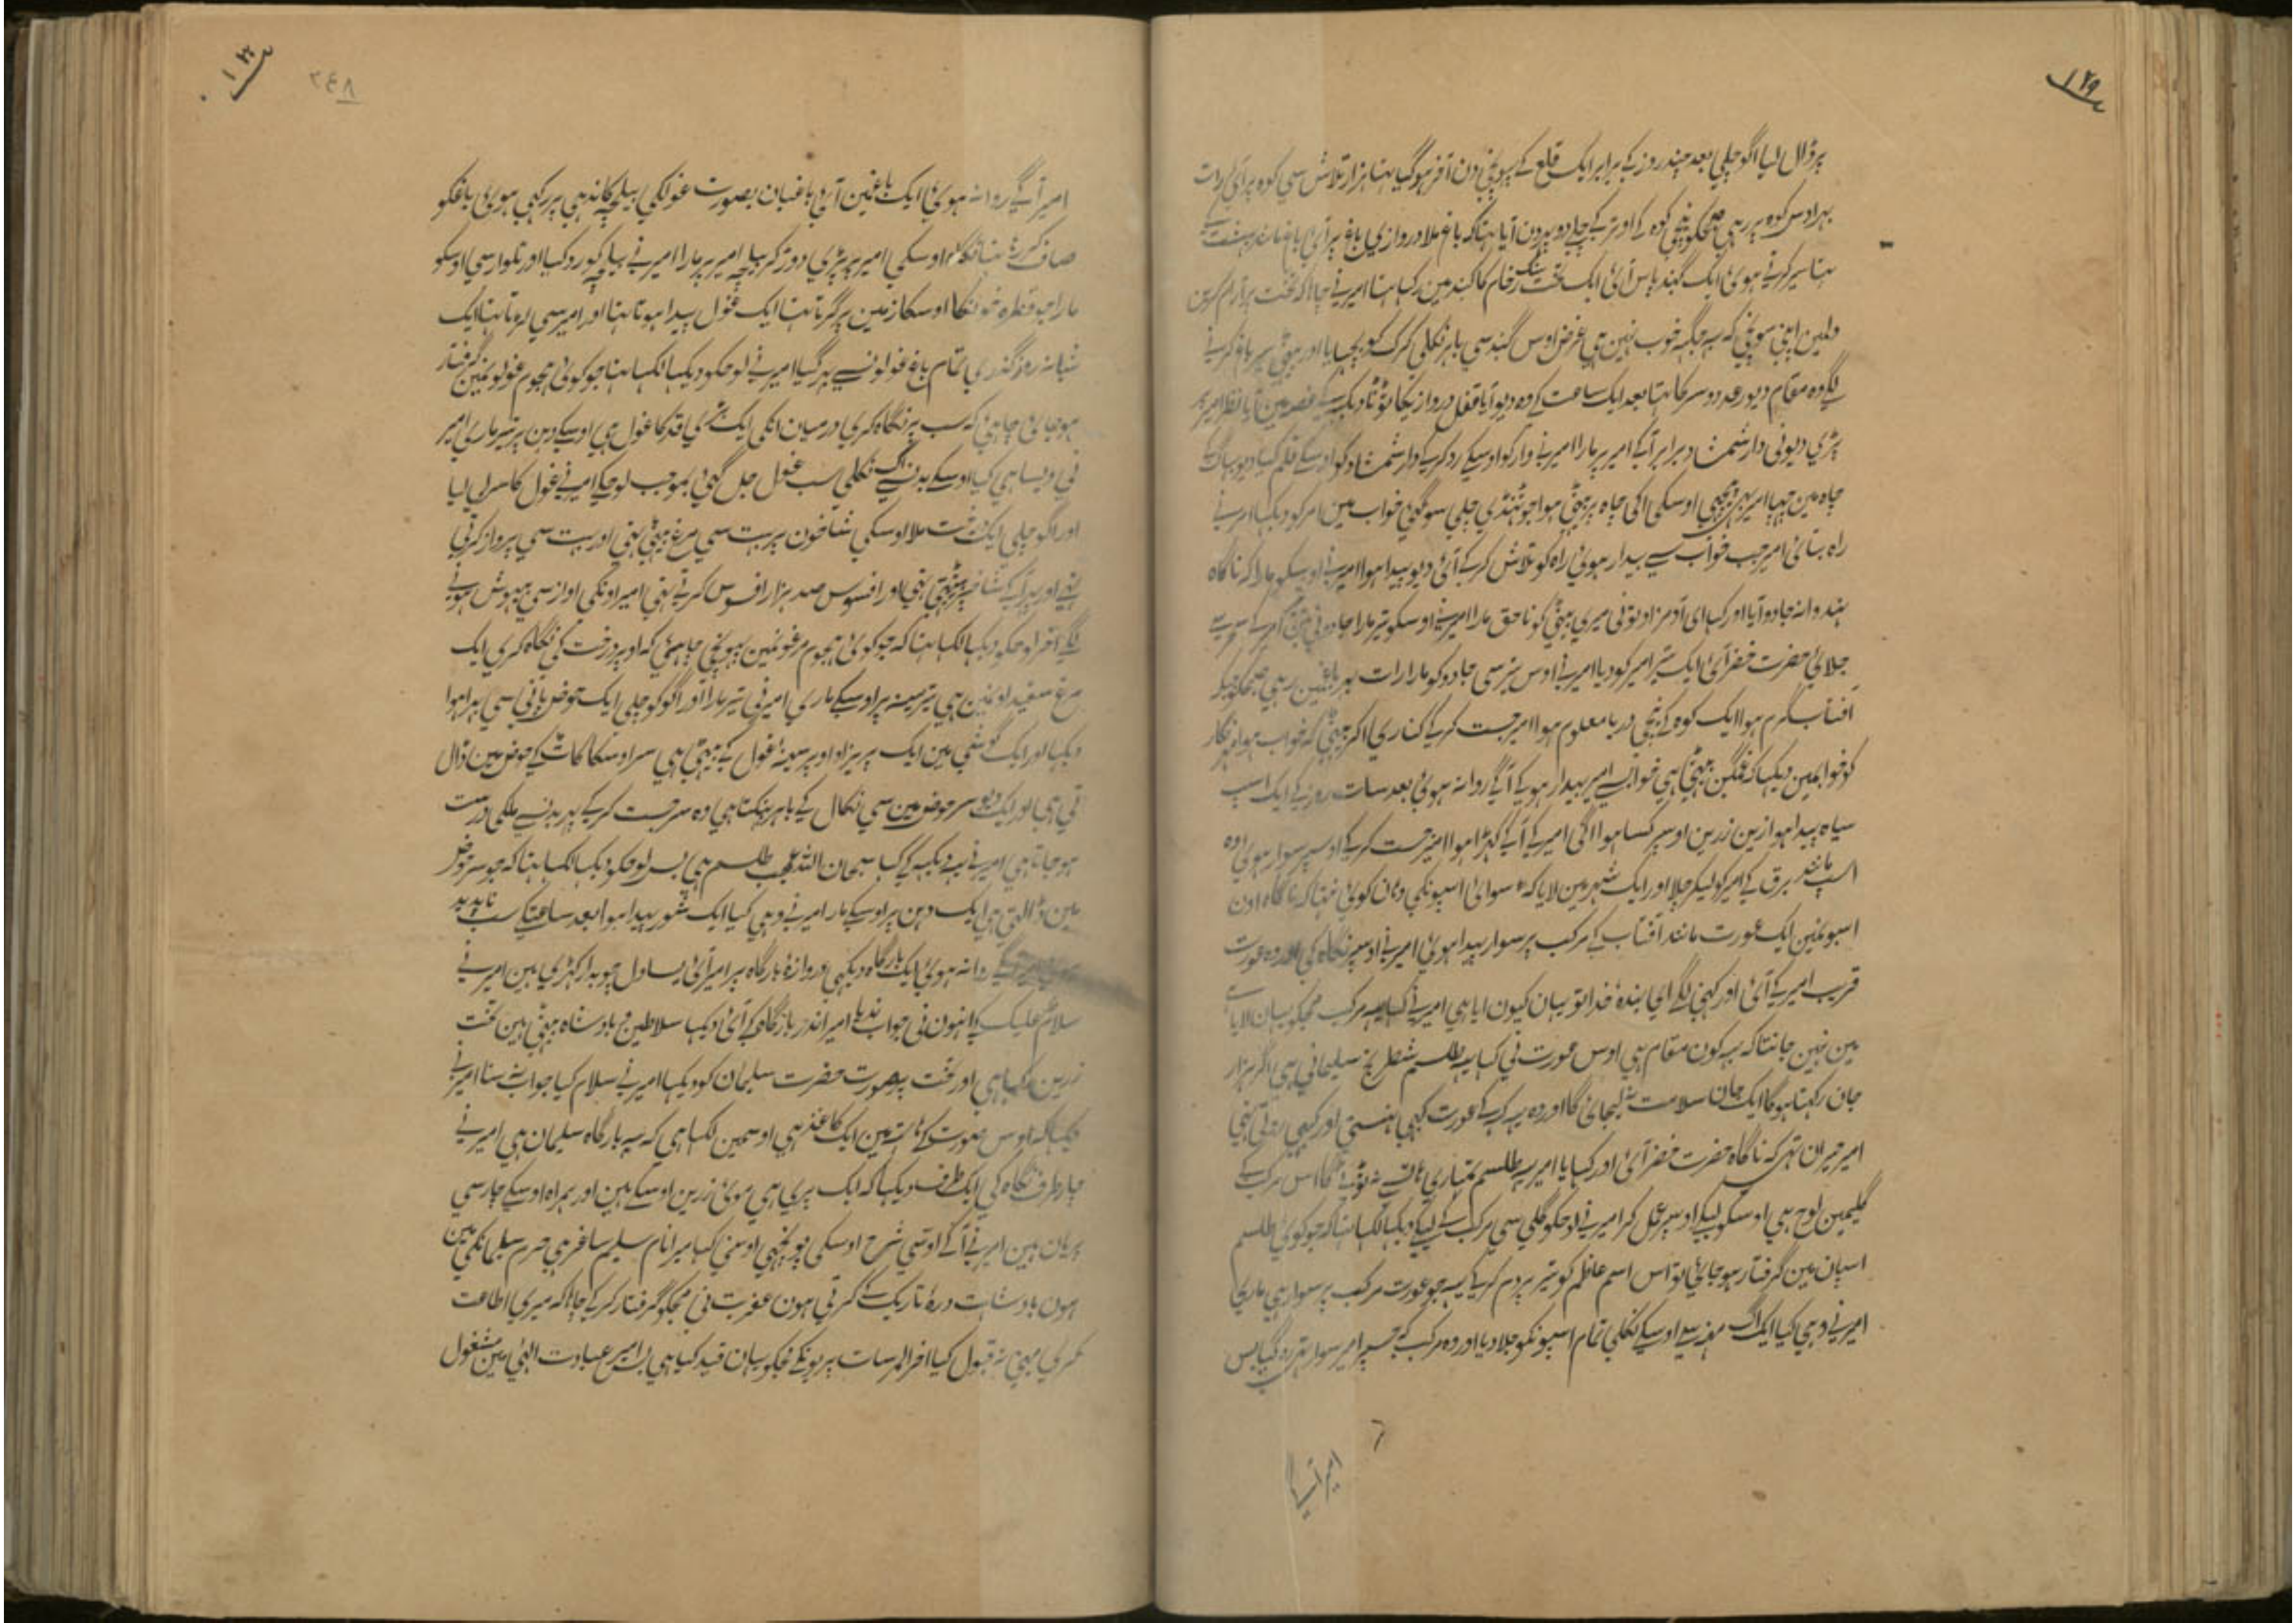 ۱۲۹
پر ڈال لیا اگو چلی بعد چند روز کے برابر ایک قلع کے پہونچی دن آخر ہوگیا تہا ہزار تلاش سی کوہ پر آئی رات
بہر اوس کوہ پر رہی صبحکو نیچی کوہ کے اوتر کے چلی دوپہر دن آیا تہا کہ باغ ملا دروازی باغ پر آئی باغ مانند بہشت کے
تہا سیر کرتی ہوئی ایک گنبد پاس آئی ایک تخت سنگ رخام کا گنبد مین رکہا تہا امیر نی چاہا کہ تخت پر آرام کرین
دلمین اپنی سونچی کہ یہ جگہہ خوب نہین ہی غرض اوس گنبد سی باہر نکلی کرک کو بچہایا اور بیٹہی سیر باغ کرنی
لگے وہ مقام دیو رعد دوسر کا تہا بعد ایک ساعت کے وہ دیو آیا قفل دروازیکا ٹوٹا دیکہہ کے غصہ مین آیا نظر امیر پر
پڑی دیونی دار شمشاد برابر آکے امیر پر مارا امیر نی وار کو اوسکے رد کرکے دار شمشاد کو اوسکے قلم کیا دیو بہاگ کے
چاہ مین چہپا امیر بہی پیچہی اوسکی اکی چاہ پر بیٹہی ہوا جو ٹہنڈی چلی سو گئی خواب مین امر کو دیکہا امر نی
راہ بتائی امیر جب خواب سے بیدار ہوئی راہ کو تلاش کر کے آئی دیو پیدا ہوا امیر نی اوسکو مارا کہ ناگاہ
ہندوانہ جادو آیا اور کہا ای آدمزاد تونی میری بیٹی کو ناحق مارا امیر نی اوسکو تیر مارا جادونی
جلائی حضرت خضر آئی ایک تیر امیر کو دیا امیر نی اوس تیر سی جادو کو مارا رات بہر باغمین رہی صبحکو جبکہ
آفتاب گرم ہوا ایک کوہ کے نیچی دریا معلوم ہوا امیر جست کر کے کناری اکر بیٹہی کہ خواب ہوا مہر نگار
کو خوابمین دیکہا کہ غمگین بیٹہی ہی خواب سے امیر بیدار ہو کے آگے روانہ ہوئی بعد سات روز کے ایک اسپ
سیاہ پیدا ہوا زین زرین اوسپر کسا ہوا اکی امیر کے آگے کہڑا ہوا امیر جست کر کے اوسپر سوار ہوئی وہ
اسپ مانند برق کے امیر کو لیکر چلا اور ایک شہر مین لایا کہ سوائی اسپونکی وہان کوئی نتہا کہ ناگاہ اون
اسپونمین ایک عورت مانند آفتاب کے مرکب پر سوار پیدا ہوئی امیر نی اوسپر نگاہ کی اور وہ عورت
قریب امیر کے آئی اور کہنی لگے ای بندہٴ خدا تو یہان کیون ایا ہی امیر نی کہا یہ مرکب مجہکو یہان لایا ہے
مین نہین جانتا کہ یہ کون مقام ہی اوس عورت نی کہا یہ طلسم شطرنج سلیمانی ہی اگر ہزار
جان رکہتا ہوگا ایک جان سلامت نہ لیجائی گا اور وہ یہ کہہ کے عورت کبہی ہنستی اور کبہی روتی تہی
امیر حیران تہی کہ ناگاہ حضرت خضر آئی اور کہا یا امیر یہ طلسم تمہاری ہاتہہ سے نہ ٹوٹے گا اس مرکب کے
گلیمین لوح ہی اوسکو لیکے اوسپر عمل کر امیر نی لوحکو گلی سی مرکب کے لیکے دیکہا لکہا تہا کہ جو کوئی طلسم
اسپان مین گرفتار ہو جائی تو اس اسم اعظم کو تیر پر دم کر کے یہ جو عورت مرکب پر سوار ہی ماری
امیر نی وہی کیا ایک آگ مونہہ سے اوسکے نکلی تمام اسپونکو جلا دیا اور وہ مرکب کے جسپر امیر سوار تہی رہ گیا بس
۶
امیر آگے
۱۳۰
۲۴۸
امیر آگے روانہ ہوئی ایک باغمین آئی باغبان بصورت غولکی بیلچہ کاندہی پر رکہی ہوئی باغکو
صاف کرتا تہا نگاہ اوسکی امیر پر پڑی دوڑ کر بیلچہ امیر پر مارا امیر نی بیلچہ کو رد کیا اور تلوار سی اوسکو
مارا جو قطرہ خونکا اوسکا زمین پر گرتا تہا ایک غول پیدا ہوتا تہا اور امیر سی لڑتا تہا ایک
شبانہ روز گذری تمام باغ غولونسے بہر گیا امیر نی لوحکو دیکہا لکہا تہا جو کوئی ہجوم غولونمین گرفتار
ہو جائی چاہئی کہ سب پر نگاہ کری درمیان انکی ایک بڑی قد کا غول ہی اوسکے دہن پر تیر ماری امیر
نی ویسا ہی کیا اوسکے بدنسے آگ نکلی سب غول جل گئی بموجب لوحکے امیر نی غول کا سر لی لیا
اور اگو چلی ایک درخت ملا اوسکی شاخون پر بہت سی مرغ بیٹہی تہی اور بہت سی پرواز کرتی
تہی اور پہر آکے شاخ پر بیٹہتی تہی اور افسوس صد ہزار افسوس کرتی تہی امیر اونکی اواز سی بیہوش ہونی
لگے آخر لوحکو دیکہا لکہا تہا کہ جو کوئی ہجوم مرغونمین پہونچی چاہئی کہ اوپر درخت کی نگاہ کری ایک
مرغ سفید اونمین ہی تیر سینہ پر اوسکے ماری امیر نی تیر مارا اور اگو کو چلی ایک حوض پانی سی بہرا ہوا
دیکہا اور ایک گوشی مین ایک پریزاد اوپر سینہٴ غول کے بیٹہی ہی سر اوسکا کاٹ کے حوض مین ڈال
تی ہی اور ایک دیو سر حوض مین سی نکال کے باہر پہنکتا ہی وہ سر جست کر کے پہر بدنسے ملکی درست
ہو جاتا ہی امیر نی یہ دیکہہ کے کہا سبحان اللہ عجب طلسم ہی بس لوحکو دیکہا لکہا تہا کہ جو سر حوض
مین ڈالتی ہی ایک دہن پر اوسکے مار امیر نی وہی کیا ایک شور پیدا ہوا بعد ساعتکے سب ناپدید
روانہ ہوئی ایک بارگاہ دیکہی دروازۂ بارگاہ پر امیر آئی یساول چوبدار کہڑی ہین امیر نی
سلام علیک کے انہون نی جواب ندیا امیر اندر بارگاہ کے آئی دیکہا سلاطین و بادشاہ بیٹہی ہین تخت
زرین رکہا ہی اور تخت پر صورت حضرت سلیمان کو دیکہا امیر نی سلام کیا جواب نہ سنا امیر نی
دیکہا کہ اوس صورت کے ہاتہہ مین ایک کاغذ ہی اوسمین لکہا ہی کہ یہ بارگاہ سلیمان ہی امیر نی
چار طرف نگاہ کی ایک طرف دیکہا کہ ایک پری ہی موئی زرین اوسکے ہین اور ہمراہ اوسکے چار سی
پریان ہین امیر نی آگے اوسی شرح اوسکی پونچہی اوسنی کہا میرا نام سلیم ساغر ہی حرم سلیمانکی مین
ہون بادشاہت درۂ تاریک کے کرتی ہون عفریت نی مجہکو گرفتار کر کے چاہا کہ میری اطاعت
کری مینی نہ قبول کیا آخر الامر سات پریونکے مجہکو یہان قید کیا ہی بس امیر عبادت الہی مین مشغول